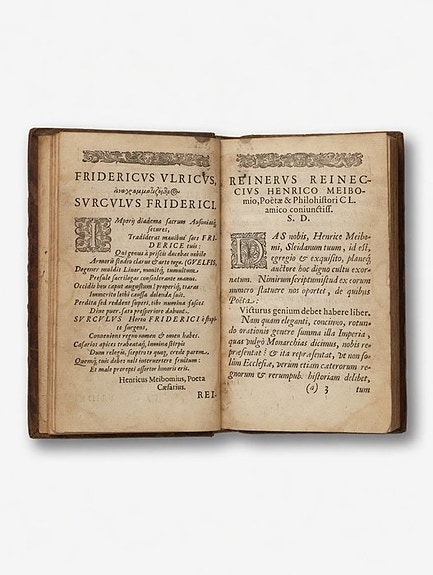 FRIDERICVS VLRICVS,
ἀναγραμματιζόμενος
SVRCVLVS FRIDERICI.
IMperij diadema sacrum Ausoniasq́
secures,
Tradiderat manibus sors FRI-
DERICE tuis:
Qui genus à priscis docebas nobile
GVELFIS,
Armorū studio clarus & arte togæ.
Degener moldis Linor,
tumultum.
Præsule sacrilegas consolerante manus.
Occidis heu caput augustum! properiq́, tiaras
Immerito lethi causa dolenda suis.
Perdita sed reddunt superi, tibi numina fascес
Dine puer. sors prosperiore dabunt.
SVRCVLVS Heros FRIDERICI è stirpe
surgens,
Conveniens regno nomen & omen habes.
Cæsarios apices trabeamq́, lumina stirpis
Dum relegis, sceptra te quoq, crede parem.
Quemq́, tuis dolet noli intervertere fastum:
Et male prærepti assertor honoris eris.
Henricus Meibomius, Poëta
Cæsarius.
REI-
REINERVS REINEC-
CIVS HENRICO MEIBO-
mio, Poëtæ & Philohistori CL.
amico coniunctiss.
S. D.
DAS nobis, Henrice Meibo-
mi, Sleidanum tuum, id est,
egregio & exquisito, planeq́;
auctore hoc digno cultu exor-
natum. Nimirum scriptum istud ex eorum
numero statuere nos oportet, de quibus
Poëta:
Victurus genium debet habere liber.
Nam quam eleganti, concinno, rotun-
do orationis genere summa illa Imperia,
quas vulgò Monarchias dicimus, nobis re-
præsentat? & ita repræsentat, vt non so-
lùm Ecclesiæ, verùm etiam cæterorum re-
gnorum & rerumpub. historiam delibet,
(a) 3 tum